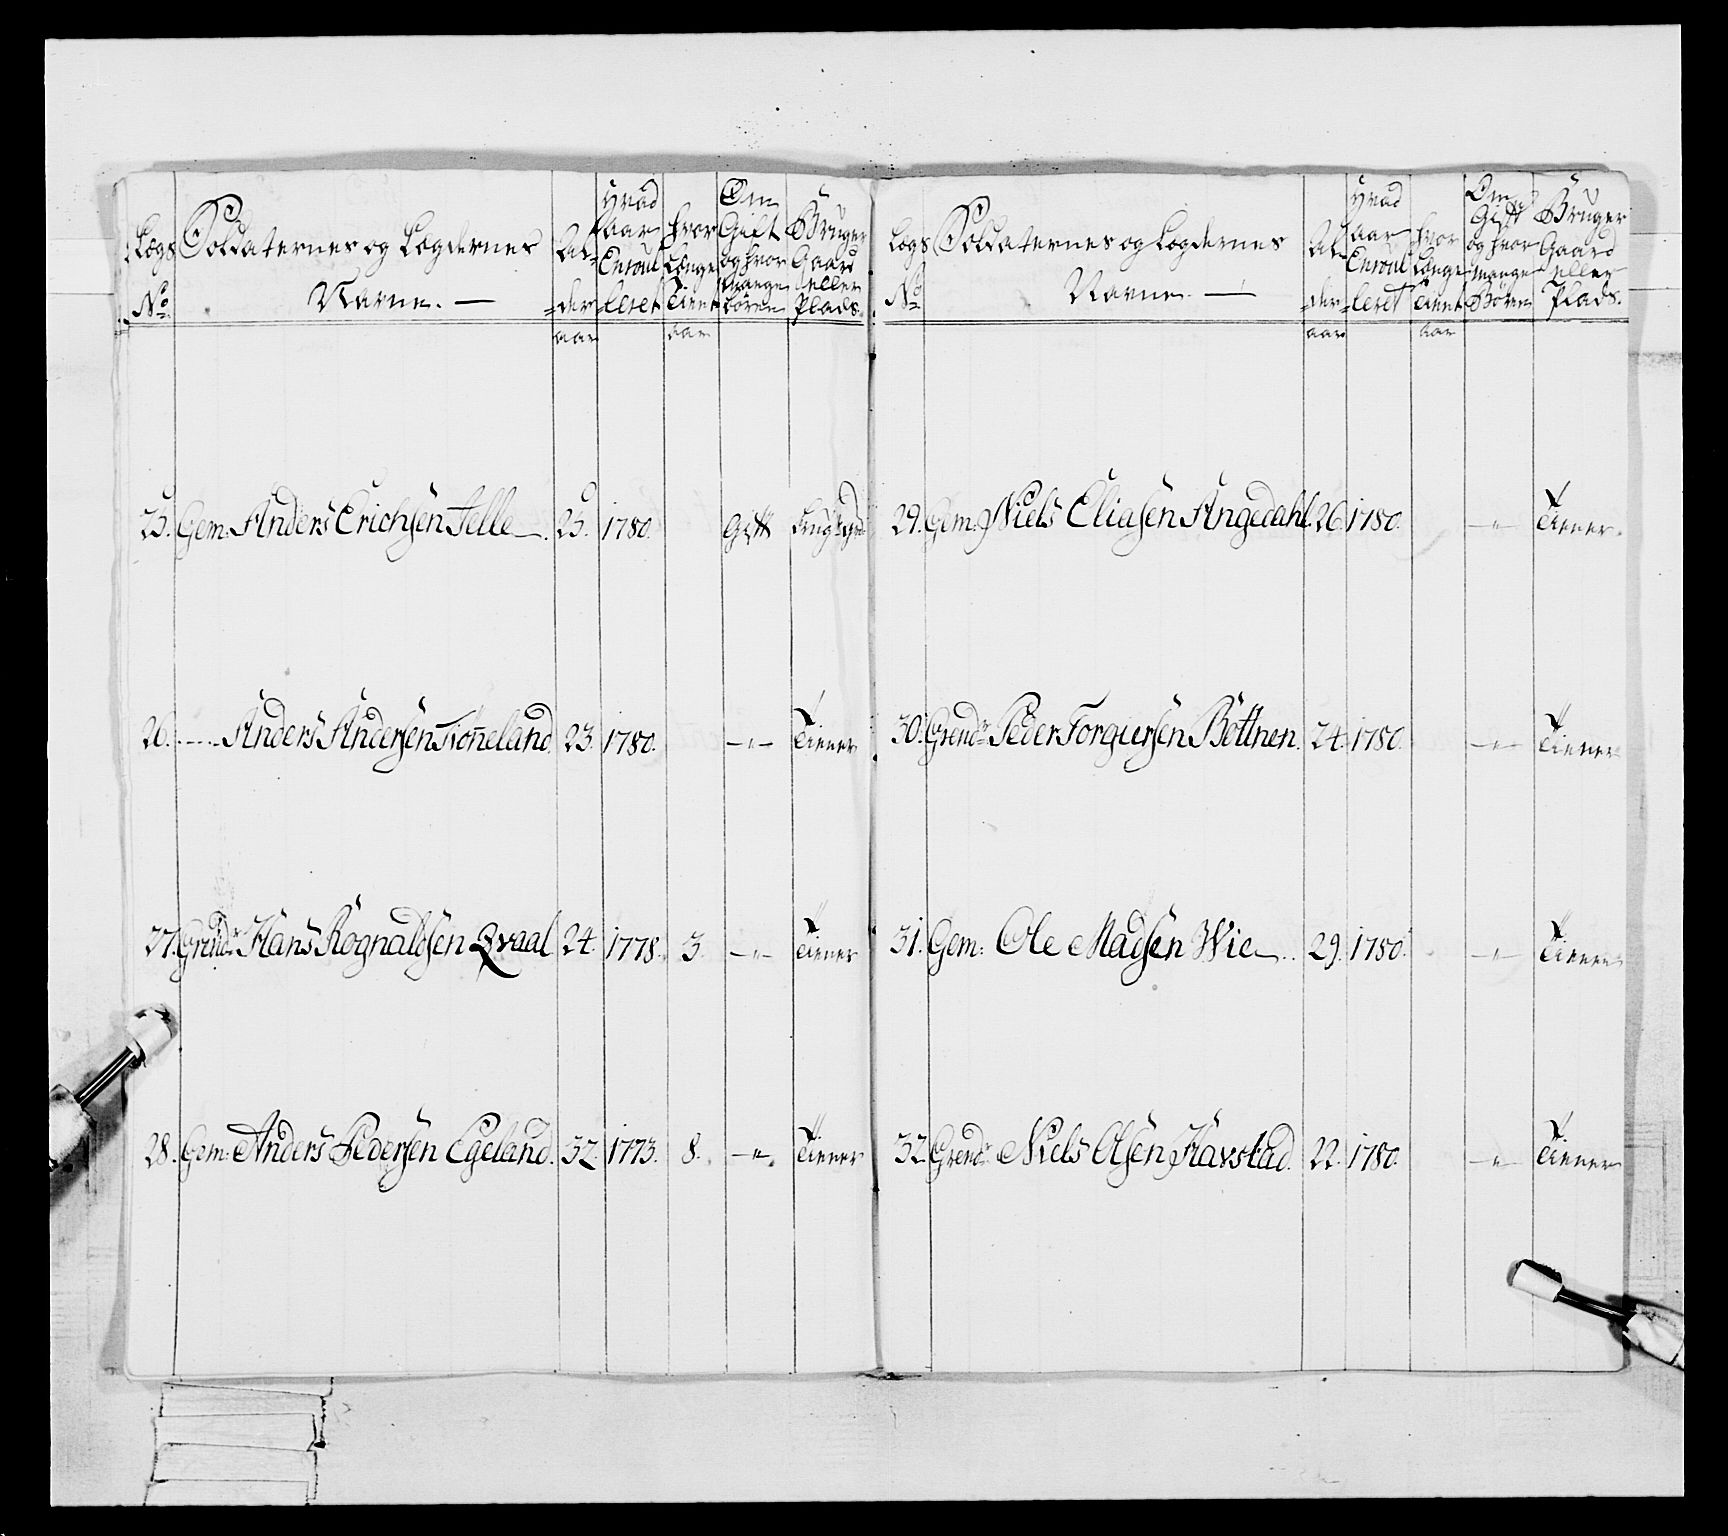 Logs No. | Soldaternes og Logdernes Navne. — | Al-der aar | Hvad Aar Enroulleret | Hvor Længe Tient aar | Om Gift og hvor Mange Børen | Bruger Gaard eller Plads.
25. Gem: Anders Erichsen Felle. 25. 1780. Gift
26. — Anders Andersen Tioneland 23. 1780. —"— Tiener
27. Grend:r Hans Rognaldsen Qvaal 24. 1778. 3. —"— Tiener
28. Gem: Anders Pedersen Egeland. 32. 1773. 8. —"— Tiener
Logs No. | Soldaternes og Logdernes Navne. — | Al-der aar | Hvad Aar Enroulleret | Hvor Længe Tient aar | Om Gift og hvor mange Børen | Bruger Gaard eller Plads.
29. Gem: Niels Eliasen Angedahl. 26. 1780. —"— Tiener.
30. Grend:r Peder Torgiersen Böttnen. 24. 1780. —"— Tiener
31. Gem: Ole Madsen Wie. 29. 1780. —"— Tiener
32. Grend:r Niels Olsen Havstad. 22. 1780. —"— Tiener